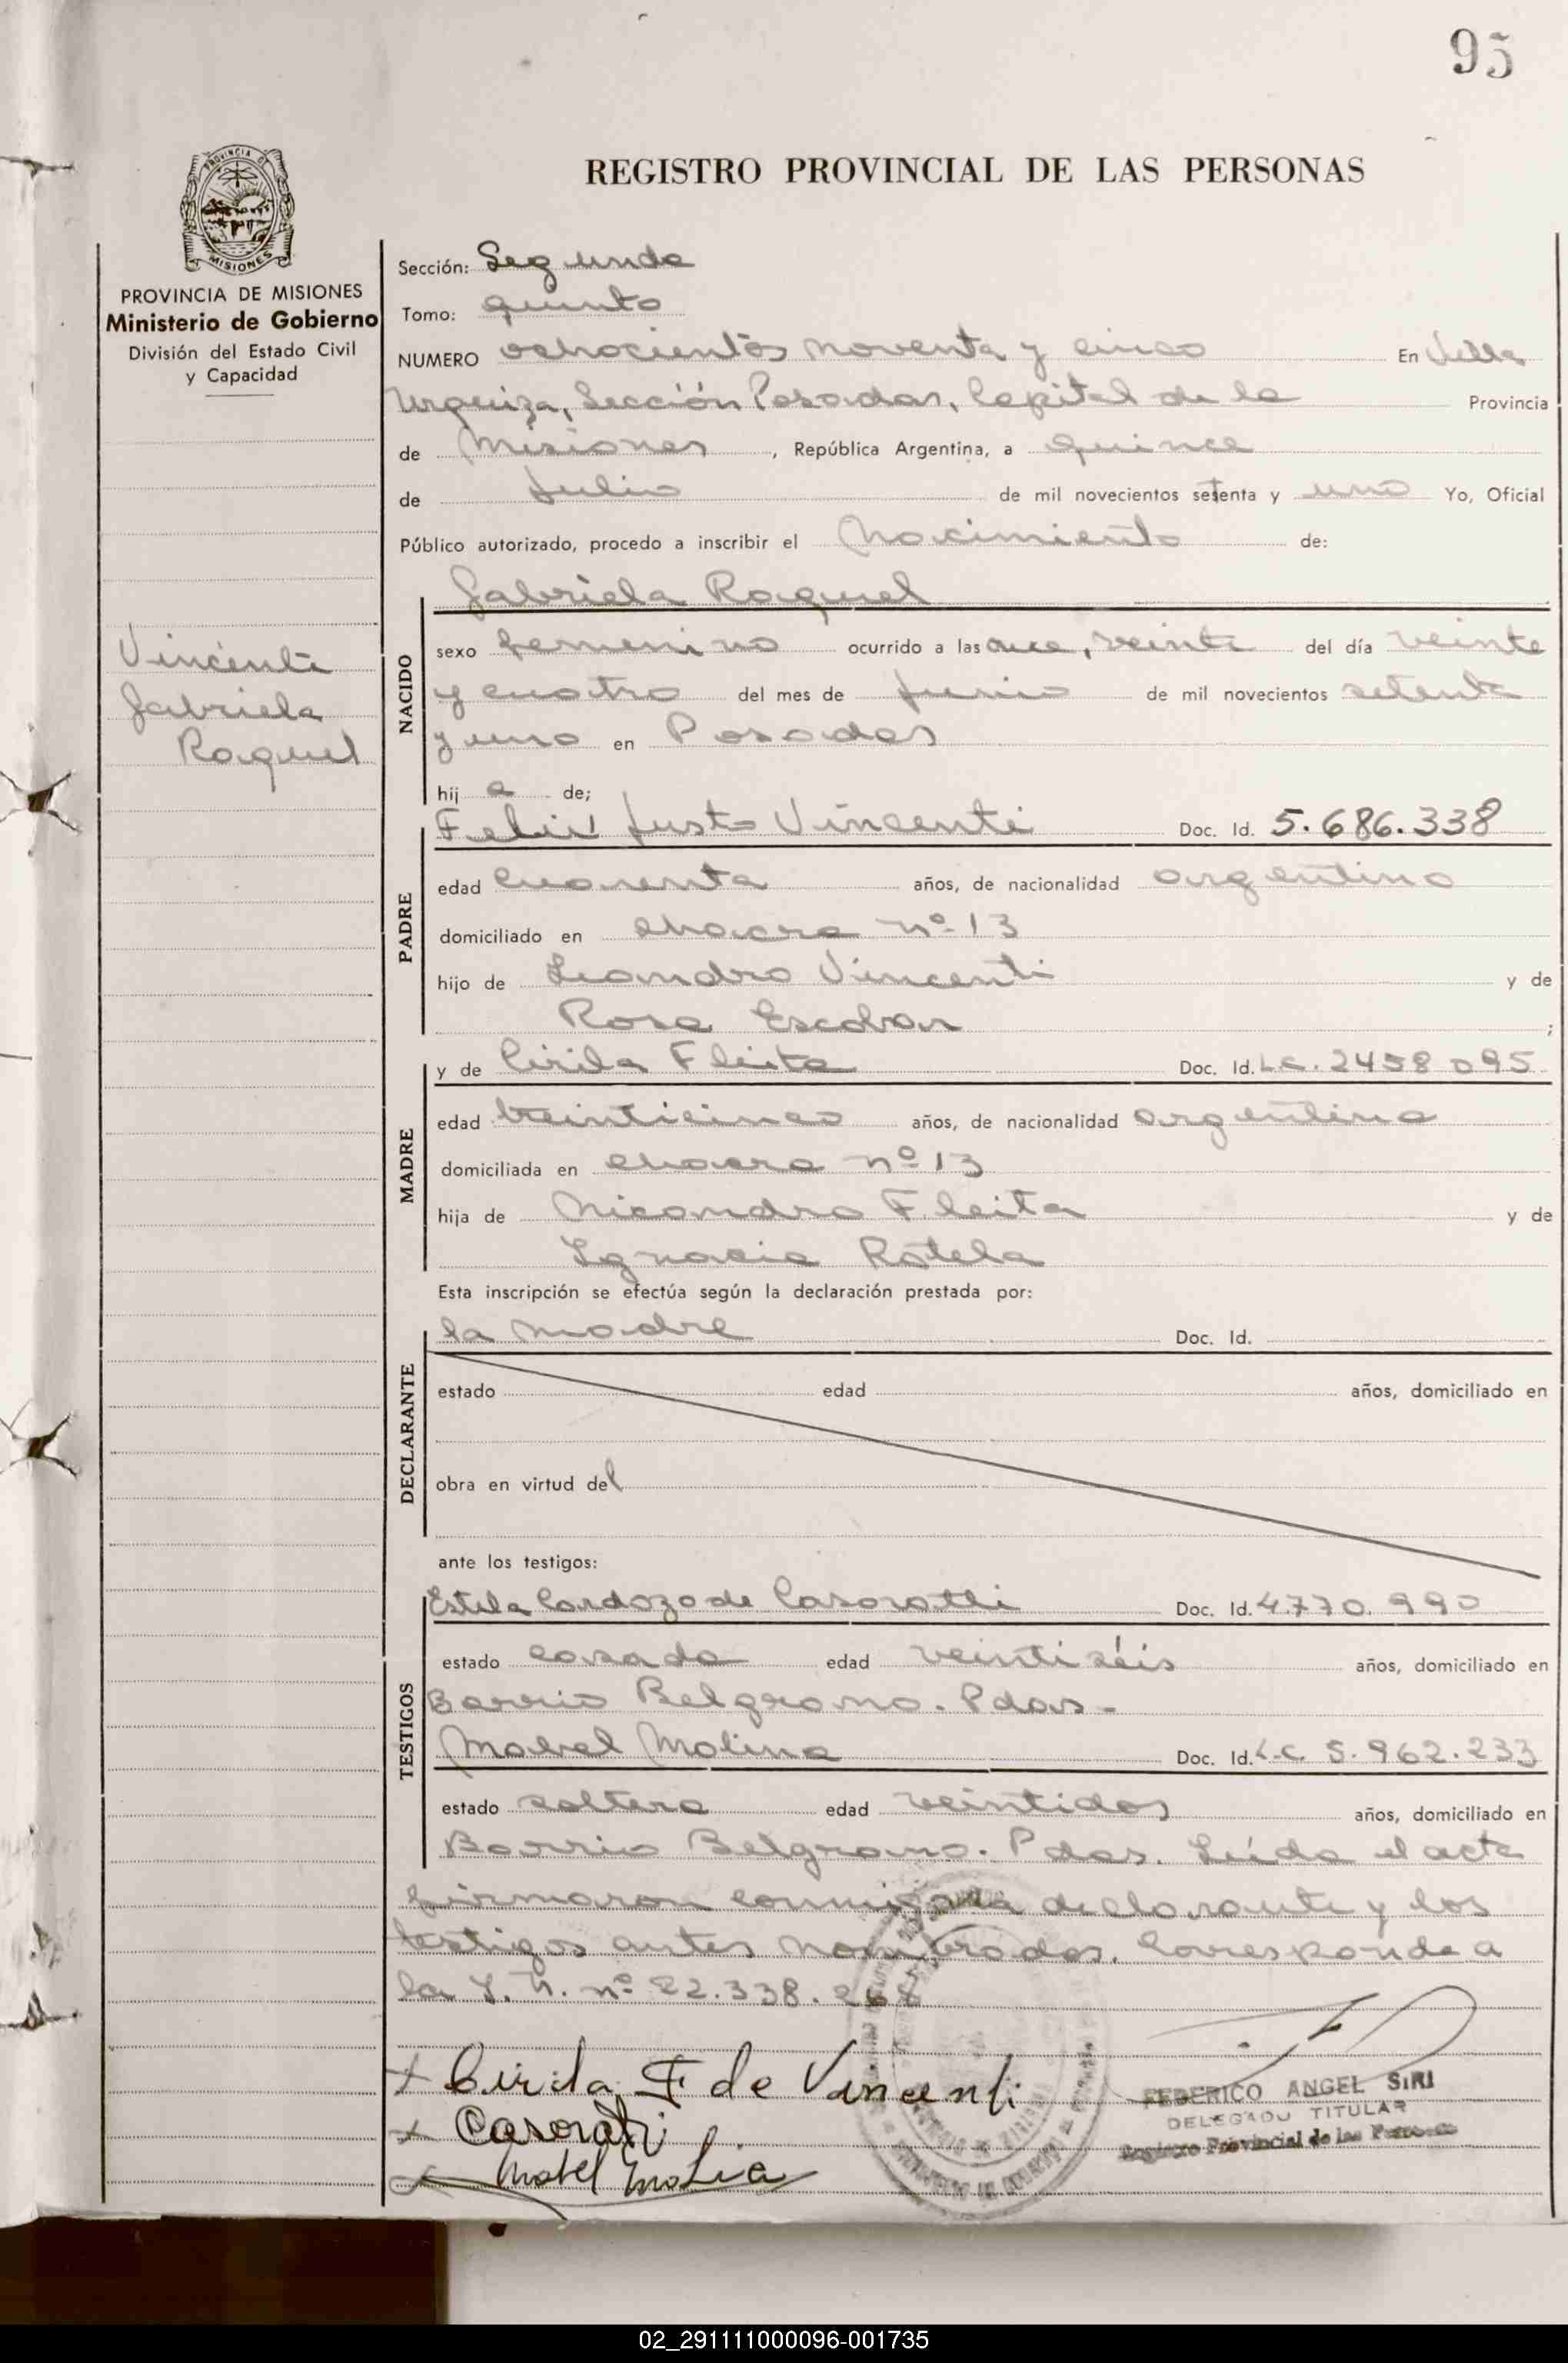 95
REGISTRO PROVINCIAL DE LAS PERSONAS
PROVINCIA DE MISIONES
Ministerio de Gobierno
División del Estado Civil
y Capacidad
Vincenti
Gabriela
Raquel
Sección: Segunda
Tomo: quinto
NUMERO ochocientos noventa y cinco En Villa
Urquiza, Sección Posadas, Capital de la Provincia
de Misiones, República Argentina, a quince
de Julio de mil novecientos setenta y uno Yo, Oficial
Público autorizado, procedo a inscribir el Nacimiento de:
Gabriela Raquel
NACIDO
sexo femenino ocurrido a las once, veinte del día veinte
y cuatro del mes de Junio de mil novecientos setenta
y uno en Posadas
hij a de;
PADRE
Felix Justo Vincenti Doc. Id. 5.686.338
edad cuarenta años, de nacionalidad argentino
domiciliado en chacra nº 13
hijo de Leandro Vincenti y de
Rosa Escobar ;
MADRE
y de Cirila Fleita Doc. Id. L.C. 2458095
edad veinticinco años, de nacionalidad argentina
domiciliada en chacra nº 13
hija de Nicandro Fleita y de
Ignacia Rotela
Esta inscripción se efectúa según la declaración prestada por:
DECLARANTE
la madre Doc. Id.
estado edad años, domiciliado en
obra en virtud del
ante los testigos:
TESTIGOS
Estela Cardozo de Casoratti Doc. Id. 4.770.990
estado casada edad veintiséis años, domiciliado en
Barrio Belgrano. Pdas-
Mabel Molina Doc. Id. L.C. 5.962.233
estado soltera edad veintidos años, domiciliado en
Barrio Belgrano. Pdas. Leída el acta
firmaron conmigo la declarante y los
testigos antes nombrados. Corresponde a
la I.N. nº 22.338.268
Cirila F de Vincenti
Casorati
Mabel Molina
FEDERICO ANGEL SIRI
DELEGADO TITULAR
Registro Provincial de las Personas
02_291111000096-001735